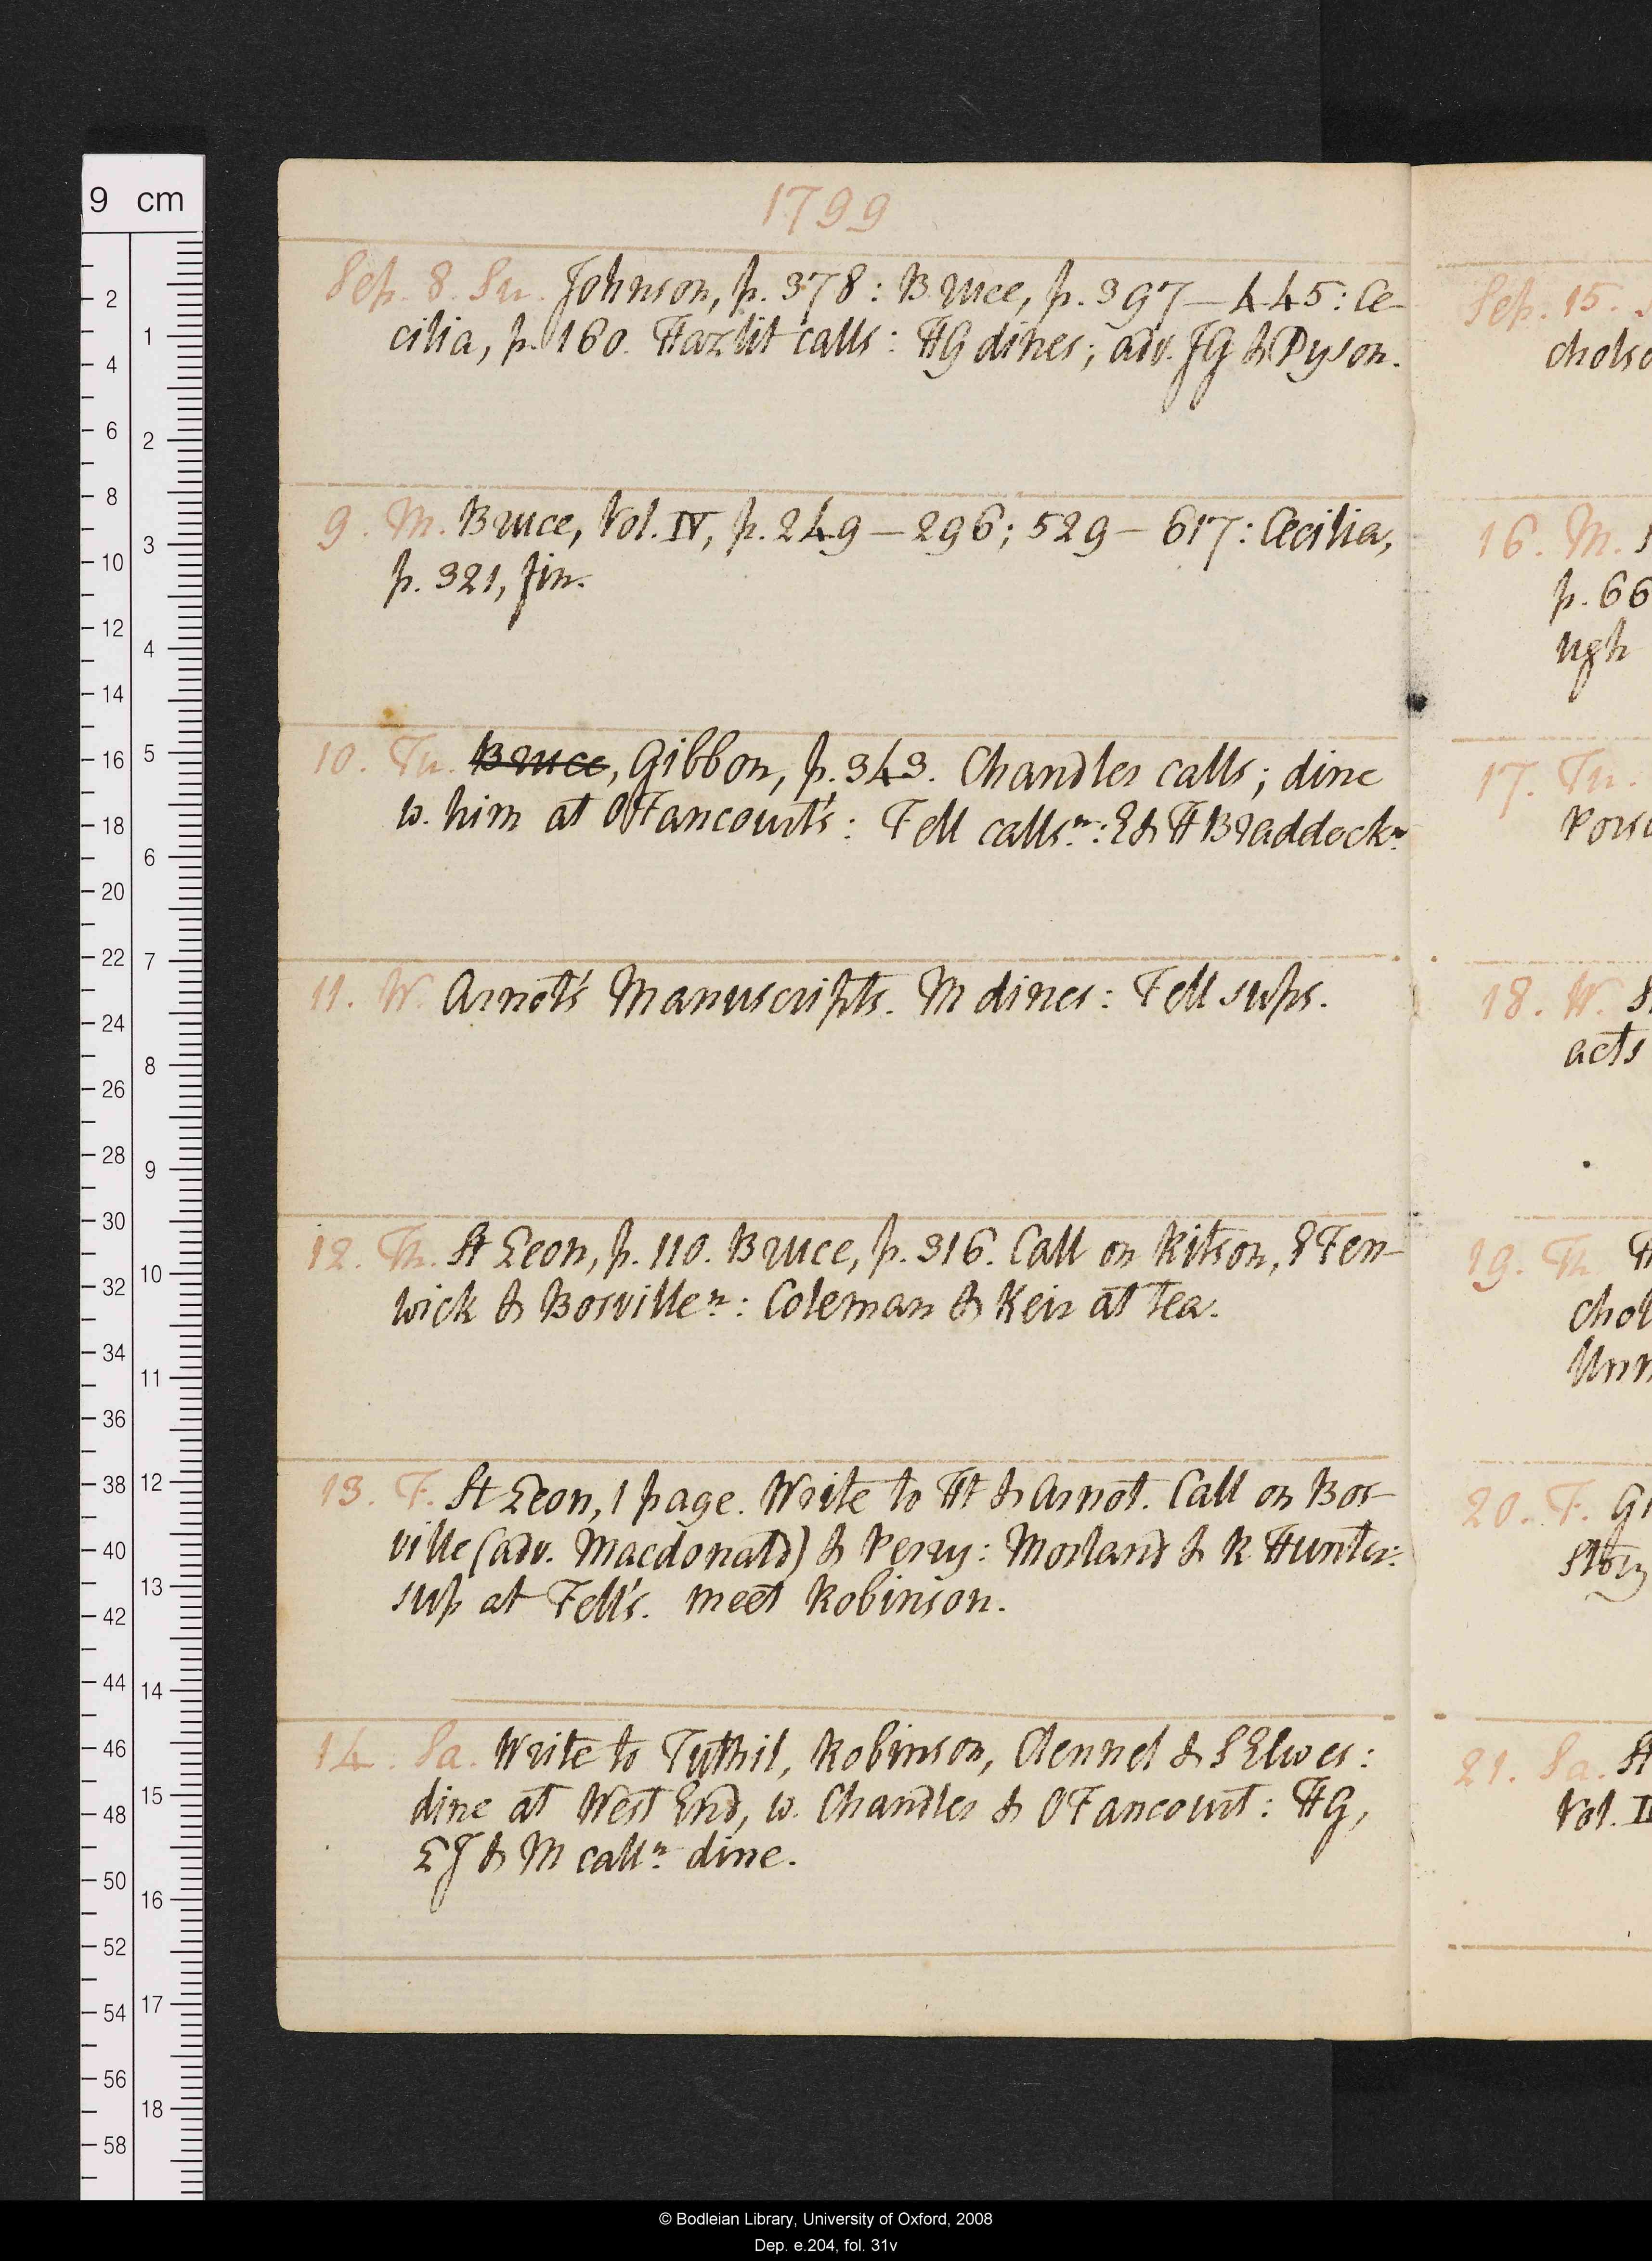 1799
Sep. 8. Su. Johnson, p. 378: Bruce, p. 397–445: Ce-
cilia, p. 160. Hazlit calls: HG dines; adv. JG & Dyson.
9. M. Bruce, Vol. IV, p. 249–296; 529–617: Cecilia,
p. 321, fin.
10. Tu. Bruce, Gibbon, p. 343. Chandler calls; dine
w. him at OFancourt's: Fell calls n: E & H Braddock n
11. W. Arnot's Manuscripts. M dines: Fell sups.
12. Th. St Leon, p. 110. Bruce, p. 316. Call on Ritson, E Fen-
wick & Bosville n: Coleman & Keir at tea.
13. F. St Leon, 1 page. Write to Ht & Arnot. Call on Bos-
ville (adv. Macdonald) & Perry: Morland & R Hunter:
sup at Fell's. meet Robinson.
14. Sa. Write to Tuthil, Robinson, Clennel & S Elwes:
dine at West End, w. Chandler & OFancourt: HG,
LJ & M call n dine.
Sep. 15.
cholso
16. M.
p. 66
ugh
17. Tu.
Pors
18. W.
acts
19. Th
chol
20. F. Gi
Story
21. Sa. St
Vol. I
9 cm
2
4
6
8
10
12
14
16
18
20
22
24
26
28
30
32
34
36
38
40
42
44
46
48
50
52
54
56
58
1
2
3
4
5
6
7
8
9
10
11
12
13
14
15
16
17
18
© Bodleian Library, University of Oxford, 2008
Dep. e.204, fol. 31v